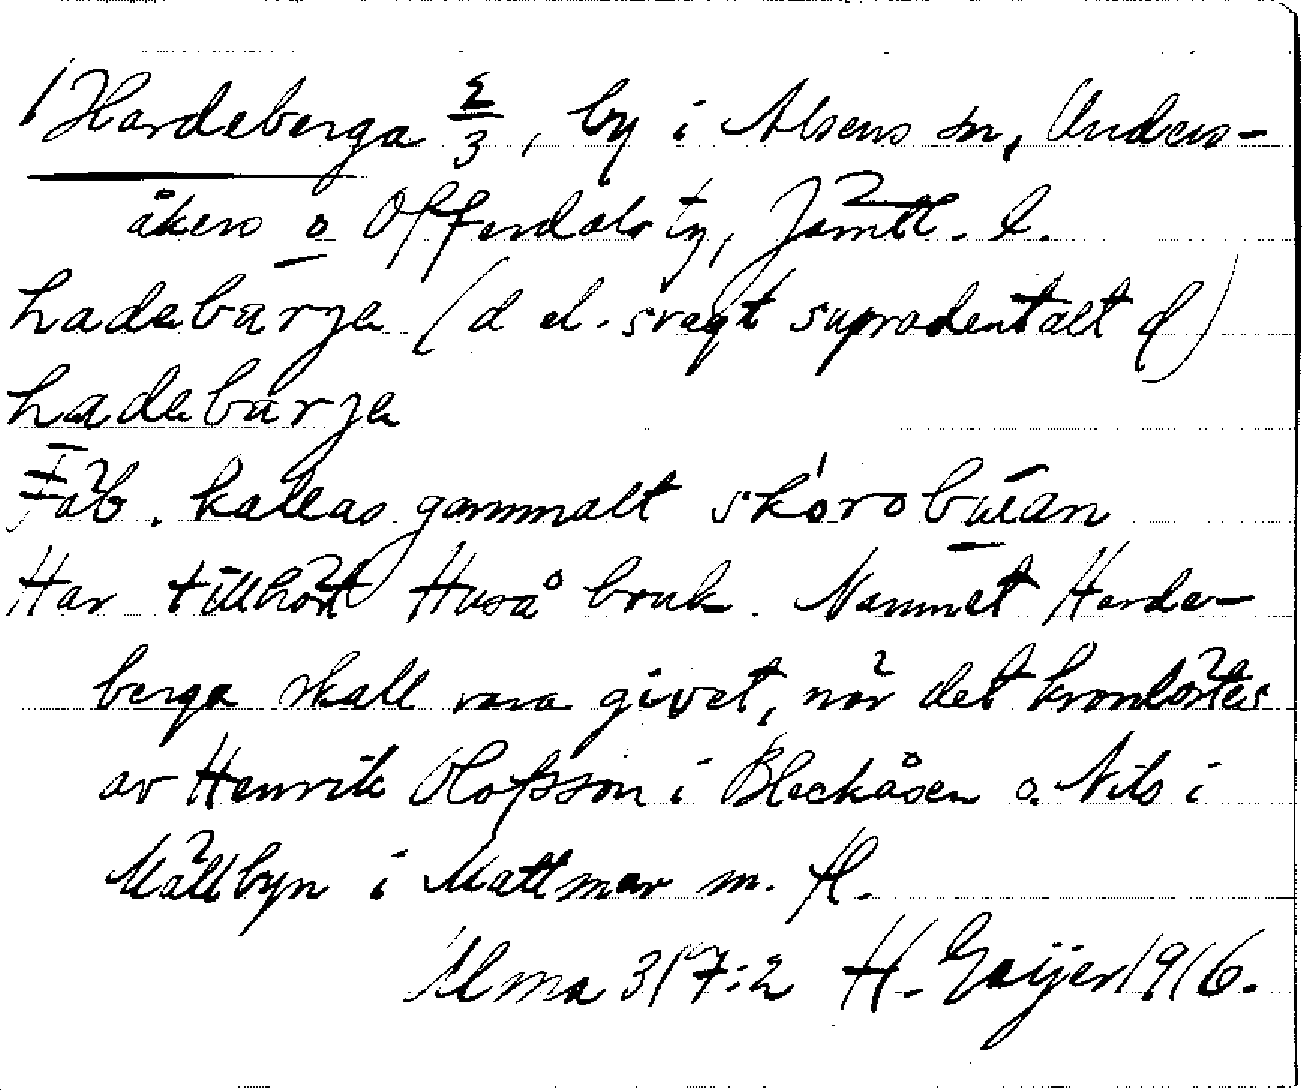 Hardeberga 2/3, by i Alsens sn, Unders-
åkers o Offerdals tg, Jämtl. l.
hadebärje (d el. svagt supradentalt ɖ)
hadebärje
Fäb. kallas gammalt skórobúan
Har tillhört Huså bruk. Namnet Harde-
berga skall vara givet, när det kronlöstes
av Henrik Olofsson i Bleckåsen o. Nils i
Mällbyn i Mattmar m. fl.
Ulma 317:2 H. Geijer 1916.